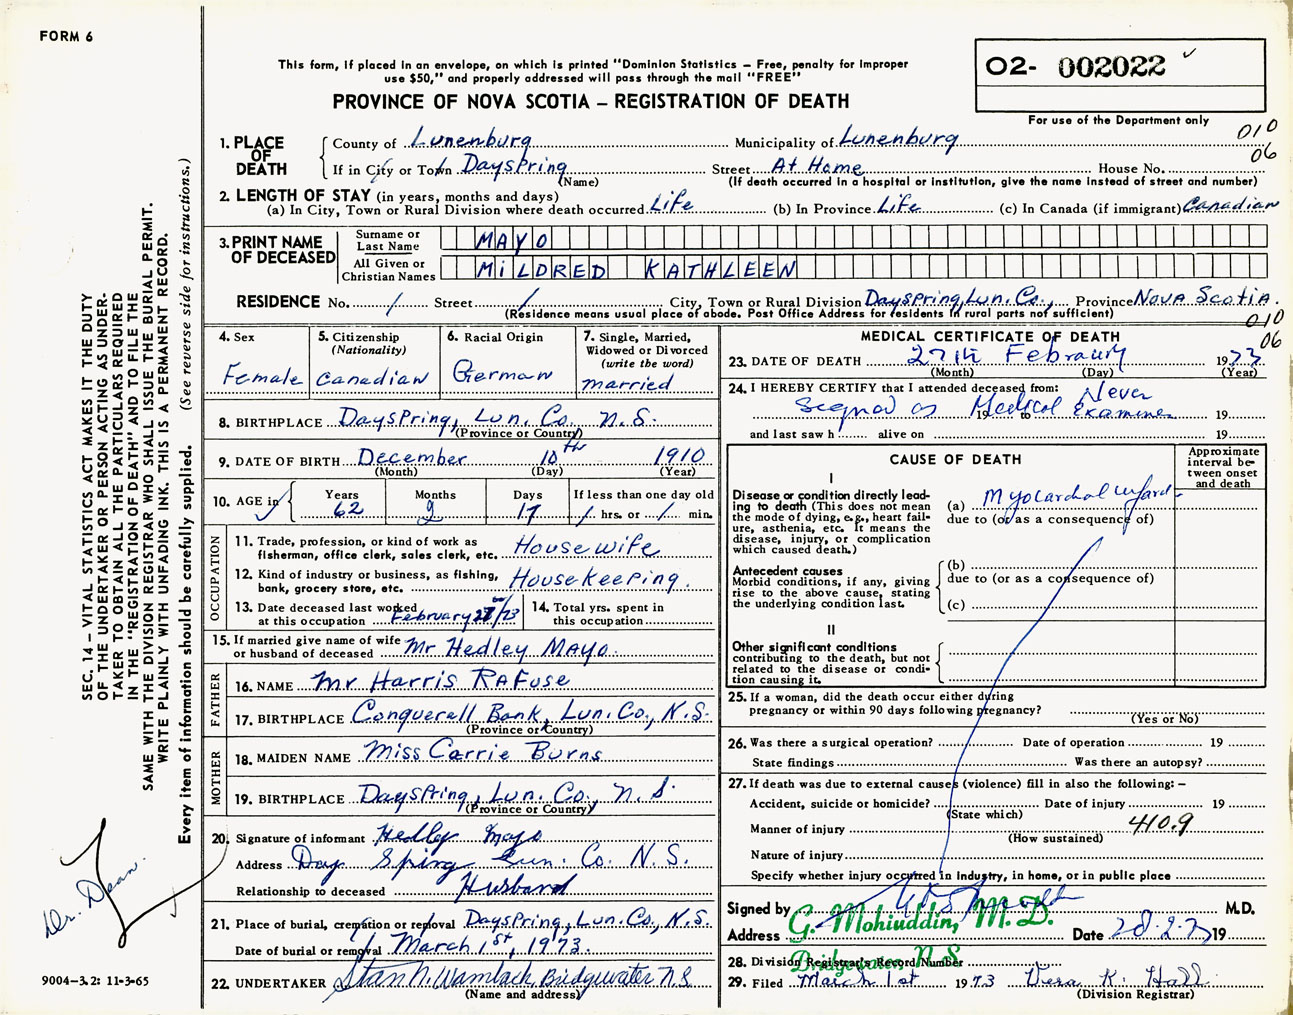 FORM 6
This form, if placed in an envelope, on which is printed "Dominion Statistics – Free, penalty for improper
use $50," and properly addressed will pass through the mail "FREE"
PROVINCE OF NOVA SCOTIA – REGISTRATION OF DEATH
O2- 002022
For use of the Department only
010
06
1. PLACE OF DEATH County of Lunenburg Municipality of Lunenburg
If in City or Town Dayspring (Name) Street At Home House No.
(If death occurred in a hospital or institution, give the name instead of street and number)
2. LENGTH OF STAY (in years, months and days)
(a) In City, Town or Rural Division where death occurred Life (b) In Province Life (c) In Canada (if immigrant) Canadian
3. PRINT NAME OF DECEASED
Surname or Last Name MAYO
All Given or Christian Names MiLDRED KATHLEEN
RESIDENCE No. / Street / City, Town or Rural Division Dayspring, Lun. Co., Province Nova Scotia.
(Residence means usual place of abode. Post Office Address for residents in rural parts not sufficient)
010
06
4. Sex Female
5. Citizenship (Nationality) Canadian
6. Racial Origin German
7. Single, Married, Widowed or Divorced (write the word) married
8. BIRTHPLACE Dayspring, Lun. Co. N.S.
(Province or Country)
9. DATE OF BIRTH December 10th 1910
(Month) (Day) (Year)
10. AGE in Years 62 Months 2 Days 17 If less than one day old / hrs. or / min.
OCCUPATION
11. Trade, profession, or kind of work as
fisherman, office clerk, sales clerk, etc. Housewife
12. Kind of industry or business, as fishing,
bank, grocery store, etc. Housekeeping.
13. Date deceased last worked
at this occupation February 27/73
14. Total yrs. spent in
this occupation
15. If married give name of wife
or husband of deceased Mr Hedley Mayo.
FATHER
16. NAME Mr Harris Rafuse
17. BIRTHPLACE Conquerall Bank, Lun. Co., N.S.
(Province or Country)
MOTHER
18. MAIDEN NAME Miss Carrie Burns
19. BIRTHPLACE Dayspring, Lun. Co., N.S.
(Province or Country)
20. Signature of informant Hedley Mayo
Address Day Spring Lun. Co. N.S.
Relationship to deceased Husband
21. Place of burial, cremation or removal Dayspring, Lun. Co., N.S.
Date of burial or removal March 1st, 1973.
22. UNDERTAKER Stan N. Wambach, Bridgewater N.S.
(Name and address)
MEDICAL CERTIFICATE OF DEATH
23. DATE OF DEATH 27th February 1973
(Month) (Day) (Year)
24. I HEREBY CERTIFY that I attended deceased from: Never
Signed as Medical Examiner 19 to 19
and last saw h alive on 19
CAUSE OF DEATH
Approximate interval between onset and death
I
Disease or condition directly leading to death (This does not mean the mode of dying, e.g., heart failure, asthenia, etc. It means the disease, injury, or complication which caused death.)
(a) Myocardial Infard-
due to (or as a consequence of)
Antecedent causes
Morbid conditions, if any, giving rise to the above cause, stating the underlying condition last.
(b)
due to (or as a consequence of)
(c)
II
Other significant conditions
contributing to the death, but not related to the disease or condition causing it.
25. If a woman, did the death occur either during
pregnancy or within 90 days following pregnancy?
(Yes or No)
26. Was there a surgical operation? Date of operation 19
State findings Was there an autopsy?
27. If death was due to external causes (violence) fill in also the following: –
Accident, suicide or homicide? Date of injury 19
(State which)
Manner of injury 410.9
(How sustained)
Nature of injury
Specify whether injury occurred in industry, in home, or in public place
Signed by M.D.
G. Mohiuddin, M. D.
Address Date 28.2.73 19
Bridgewater, N.S
28. Division Registrar's Record Number
29. Filed March 1st 1973 Vera K. Hall
(Division Registrar)
SEC. 14 – VITAL STATISTICS ACT MAKES IT THE DUTY
OF THE UNDERTAKER OR PERSON ACTING AS UNDER-
TAKER TO OBTAIN ALL THE PARTICULARS REQUIRED
IN THE "REGISTRATION OF DEATH" AND TO FILE THE
SAME WITH THE DIVISION REGISTRAR WHO SHALL ISSUE THE BURIAL PERMIT.
WRITE PLAINLY WITH UNFADING INK. THIS IS A PERMANENT RECORD.
Every item of information should be carefully supplied. (See reverse side for instructions.)
Dr. Dean.
9004–3.2: 11-3-65